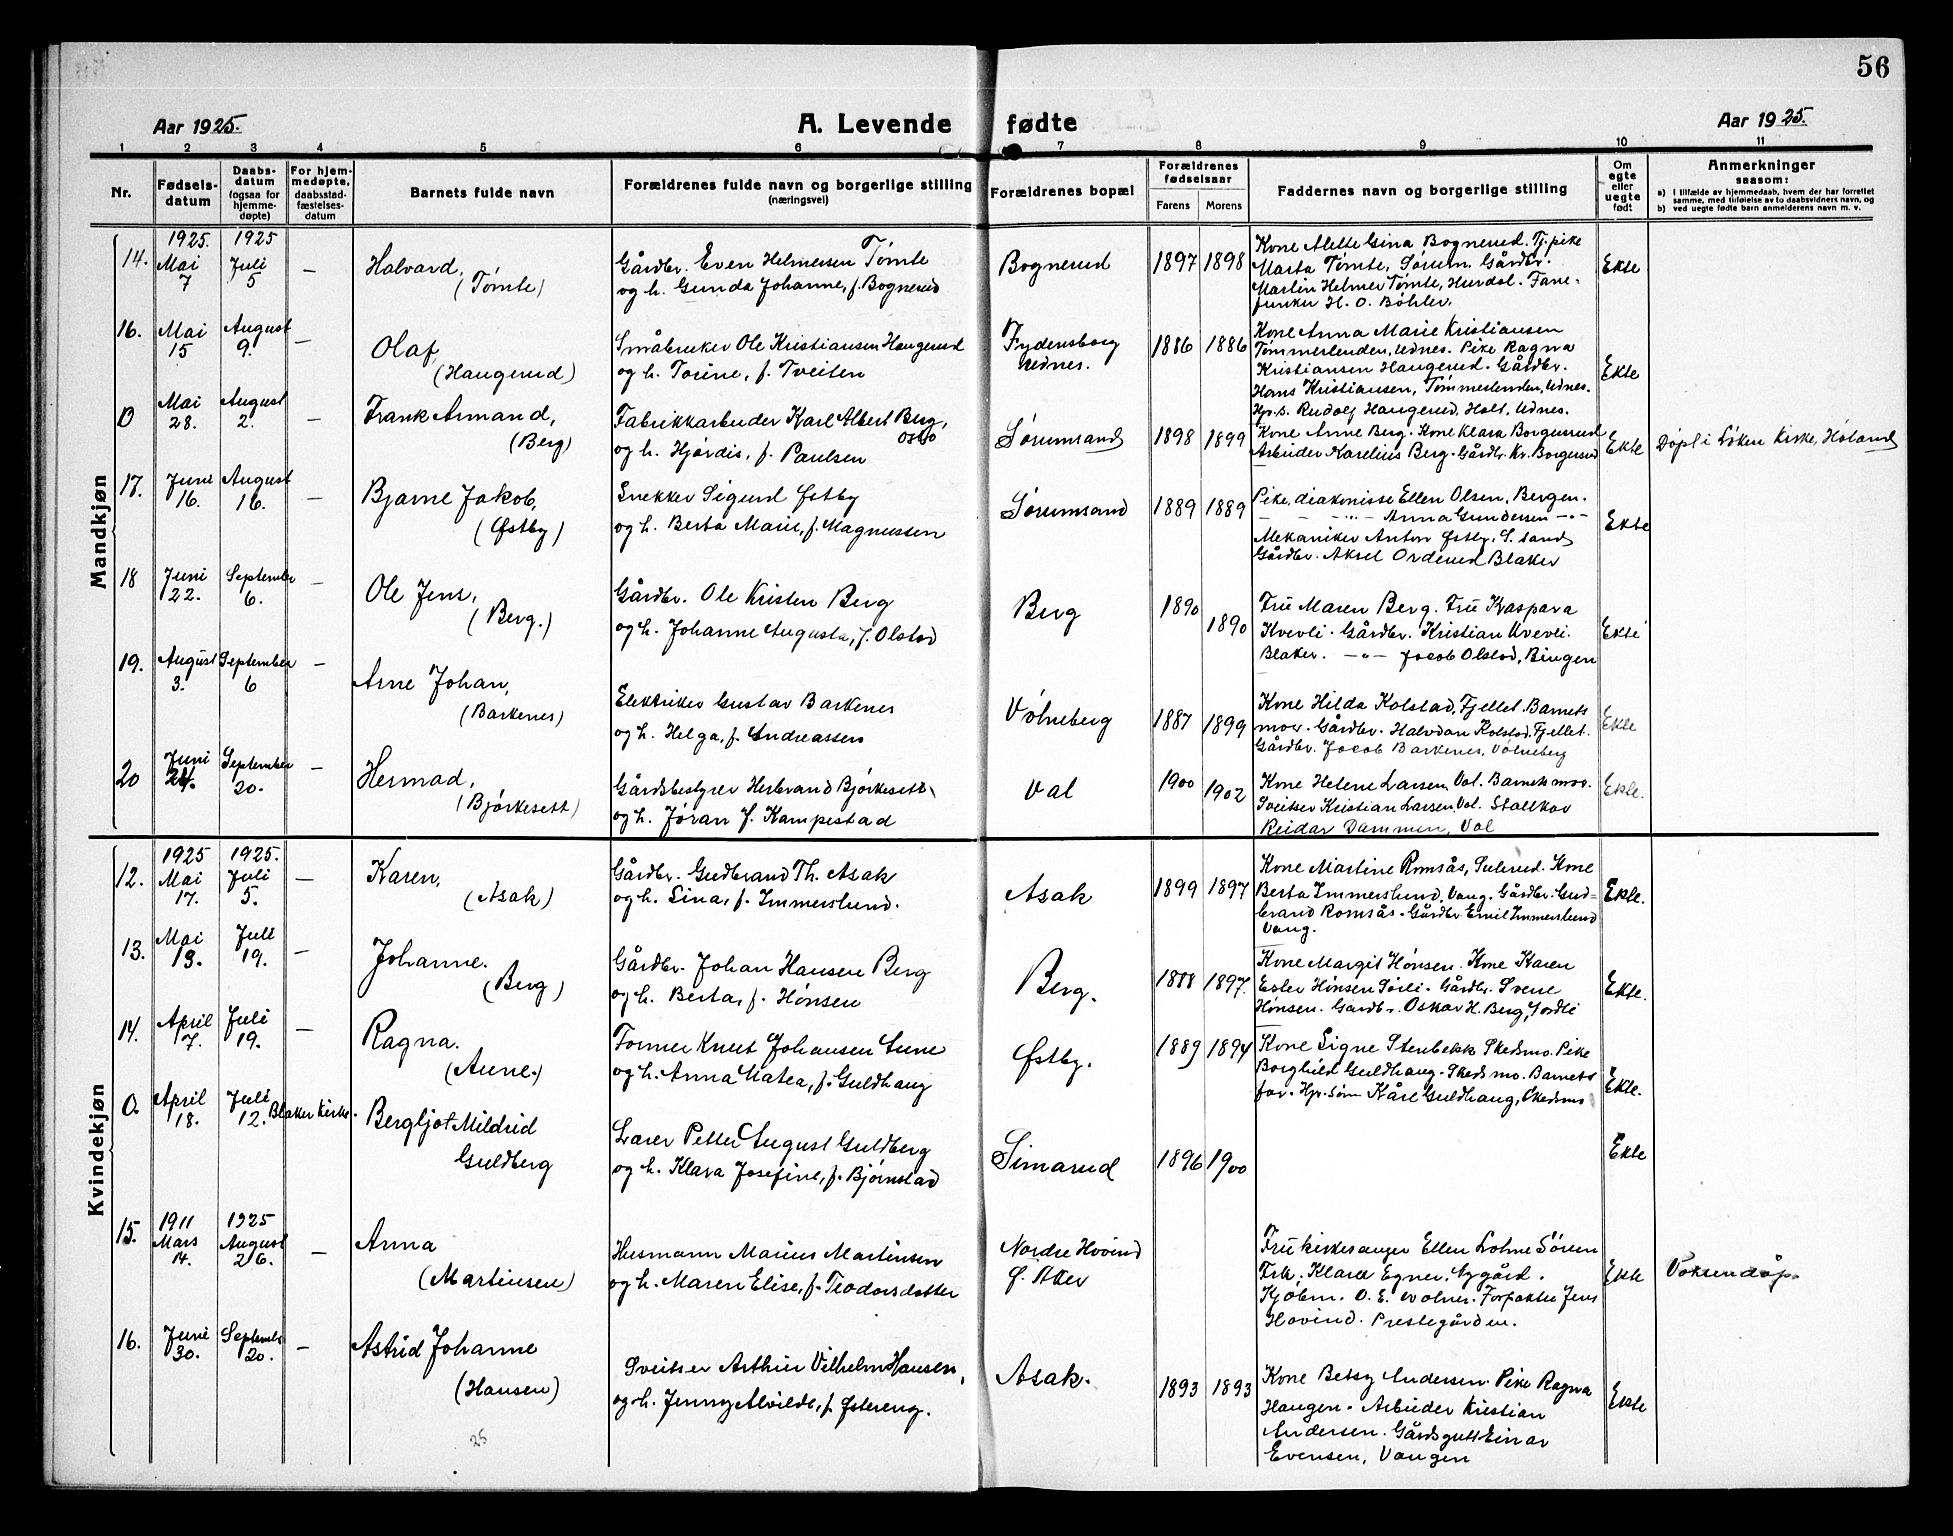 56
Aar 1925.
A. Levende fødte
Aar 1925.
1 2 3 4 5 6 7 8 9 10 11
Nr.
Fødsels-
datum
Daabs-
datum
(ogsaa for
hjemme-
døpte)
For hjem-
medøpte,
daabsstad-
fæstelses-
datum
Barnets fulde navn
Forældrenes fulde navn og borgerlige stilling
(næringsvei)
Forældrenes bopæl
Forældrenes
fødselsaar
Farens Morens
Faddernes navn og borgerlige stilling
Om
egte
eller
uegte
født
Anmerkninger
saasom:
a) I tilfælde av hjemmedaab, hvem der har forrettet
samme, med tilføielse av to daabsvidners navn, og
b) ved uegte fødte barn anmelderens navn m. v.
Mandkjøn
14.
1925.
Mai
7
1925
Juli
5
—
Halvard,
(Tømte)
Gårdbr. Even Helmersen Tømte
og h. Gunda Johanne, f. Bognerud
Bognerud
1897 1898
Kone Alette Gina Bognerud. Tj. pike
Marta Tømte, Sørum. Gårdbr.
Martin Helmer Tømte, Hurdal. Fane-
junker H. O. Bøhler.
Ekte
16.
Mai
15
August
9.
—
Olaf,
(Haugerud)
Småbruker Ole Kristiansen Haugerud
og h. Torine, f. Tveiten
Frydensborg
Udnes.
1886 1886
Kone Anna Marie Kristiansen
Tømmerlenden, Udnes. Pike Ragna
Kristiansen Haugerud. Gårdbr.
Hans Kristiansen, Tømmerlenden, Udnes.
Hp. s. Rudolf Haugerud, Holt, Udnes.
Ekte
0
Mai
28.
August
2.
—
Frank Armand,
(Berg)
Fabrikkarbeider Karl Albert Berg,
Oslo
og h. Hjørdis, f. Paulsen
Sørumsand
1898 1899
Kone Anne Berg. Kone Klara Borgerud
Arbeider Karelius Berg. Gårdbr. Kr. Borgerud
Ekte
Døpt i Løken Kirke, Høland
17.
Juni
16.
August
16.
—
Bjarne Jakob,
(Østby)
Snekker Sigurd Østby
og h. Berta Marie, f. Magnussen
Sørumsand
1889 1889
Pike, diakonisse Ellen Olsen, Bergen.
— — — " — Anna Gundersen — " —
Mekaniker Anton Østby, S. sand
Gårdbr. Aksel Orderud Blaker
Ekte
18
Juni
22.
September
6.
—
Ole Jens,
(Berg.)
Gårdbr. Ole Kristen Berg
og h. Johanne Augusta, f. Olstad
Berg
1890 1890
Fru Maren Berg. Fru Kaspara
Kvevli. Gårdbr. Kristian Kvevli.
Blaker. — " — Jacob Olstad, Bingen
Ekte
19.
August
3.
September
6
—
Arne Johan,
(Barkenes)
Elektriker Gustav Barkenes
og h. Helga, f. Andreassen
Vølneberg
1887 1899
Kone Hilda Kolstad, Fjellet. Barnets
mor. Gårdbr. Halvdan Kolstad, Fjellet.
Gårdbr. Jacob Barkenes, Vølneberg
Ekte
20
Juni
24.
September
20.
—
Hermad,
(Bjørkesett)
Gårdsbestyrer Herbrand Bjørkesett
og h. Jøran f. Kampestad
Val
1900 1902
Kone Helene Larsen, Val. Barnets mor.
Sveitser Kristian Larsen, Val. Stallkar
Reidar Dammen, Val
Ekte.
Kvindekjøn
12.
1925
Mai
17.
1925.
Juli
5.
—
Karen,
(Asak)
Gårdbr. Gudbrand Th. Asak
og h. Lina, f. Immerslund.
Asak
1899 1897
Kone Martine Romsås, Sulerud. Kone
Berta Immerslund, Vang. Gårdbr. Gud-
brand Romsås. Gårdbr. Emil Immerslund
Vang.
Ekte.
13.
Mai
13.
Juli
19.
—
Johanne.
(Berg)
Gårdbr. Johan Hansen Berg
og h. Berta, f. Hønsen
Berg.
1888 1897.
Kone Margit Hønsen. Kone Karen
Ester Hønsen Sørli. Gårdbr. Svene
Hønsen. Gårdbr. Oskar H. Berg, Jordli
Ekte.
14.
April
7.
Juli
19.
—
Ragna.
(Aune.)
Former Knut Johansen Aune
og h. Anna Matea, f. Guldhaug
Østby.
1889 1894
Kone Signe Stenbekk Skedsmo. Pike
Borghild Guldhaug. Skedsmo. Barnets
far. Hp. søn Kåre Guldhaug, Skedsmo
Ekte.
0.
April
18.
Juli
12.
Blaker Kirke.
Bergljot Mildrid
Guldberg
Lærer Petter August Guldberg
og h. Klara Josefine, f. Bjørnstad
Simarud
1896 1900
Ekte
15.
1911
Mars
14.
1925
August
26.
—
Anna
(Martinsen)
Husmann Marius Martinsen
og h. Maren Elise, f. Teodorsdatter
Nordre Hovind
Ø. Aker
Fru kirkesanger Ellen Lohne Sørum
Frk. Klara Egner, Nygård.
Kjøbm. O. E. Wolner. Forpakter Jens
Hovind. Prestegården.
Ekte
Voksendåp.
16.
Juni
30.
September
20.
—
Astrid Johanne
(Hansen)
Sveitser Arthur Vilhelm Hansen,
og h. Jenny Alvilde, f. Østereng.
Asak.
1893 1893
Kone Betsy Andersen. Pike Ragna
Haugen. Arbeider Kristian
Andersen. Gårdsgutt Einar
Evensen, Vangen
Ekte
25